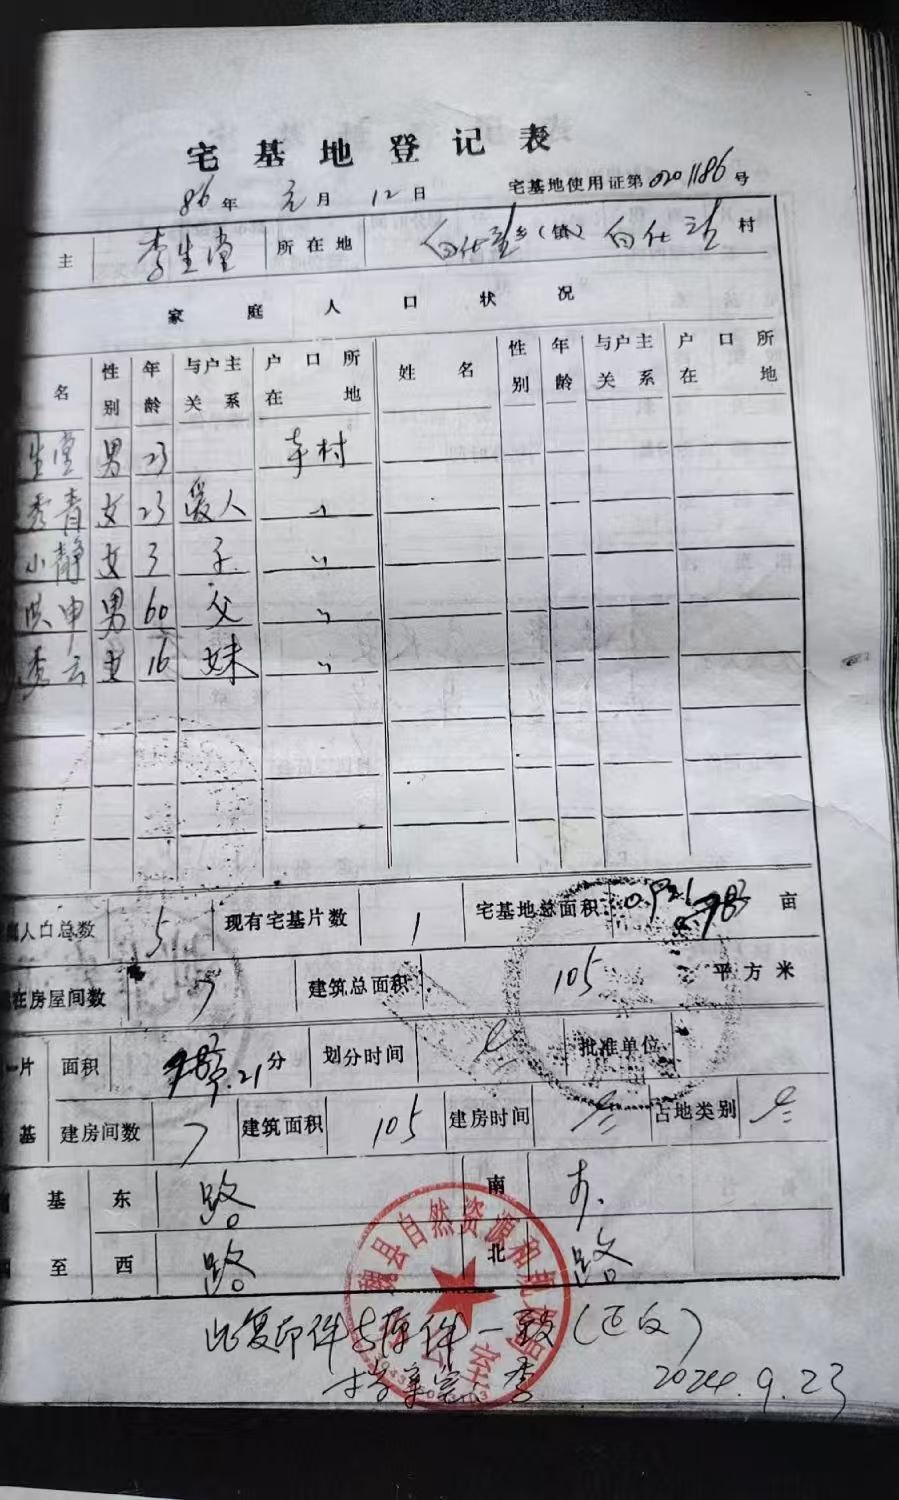 宅基地登记表
86年元月12日 宅基地使用证第0201186号
主 李生堂 所在地 乡(镇) 村
家庭人口状况
名 性别 年龄 与户主关系 户口所在地 姓名 性别 年龄 与户主关系 户口所在地
生堂 男 23 本村
秀青 女 23 爱人 〃
小静 女 3 子 〃
洪申 男 60 父 〃
秀云 女 16 妹 〃
人口总数 5 现有宅基片数 1 宅基地总面积 亩
在房屋间数 7 建筑总面积 105 平方米
一片 面积 分 划分时间 批准单位
基 建房间数 7 建筑面积 105 建房时间 占地类别
基 东 路 南
至 西 路 北 路
县自然资源和规划局
室
此复印件与原件一致
2024.9.23